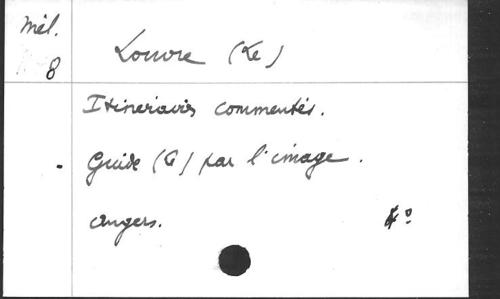 Mél.
8
Louvre (Le)
Itinéraires commentés.
Guide (Le) par l'image.
Angers.
4°